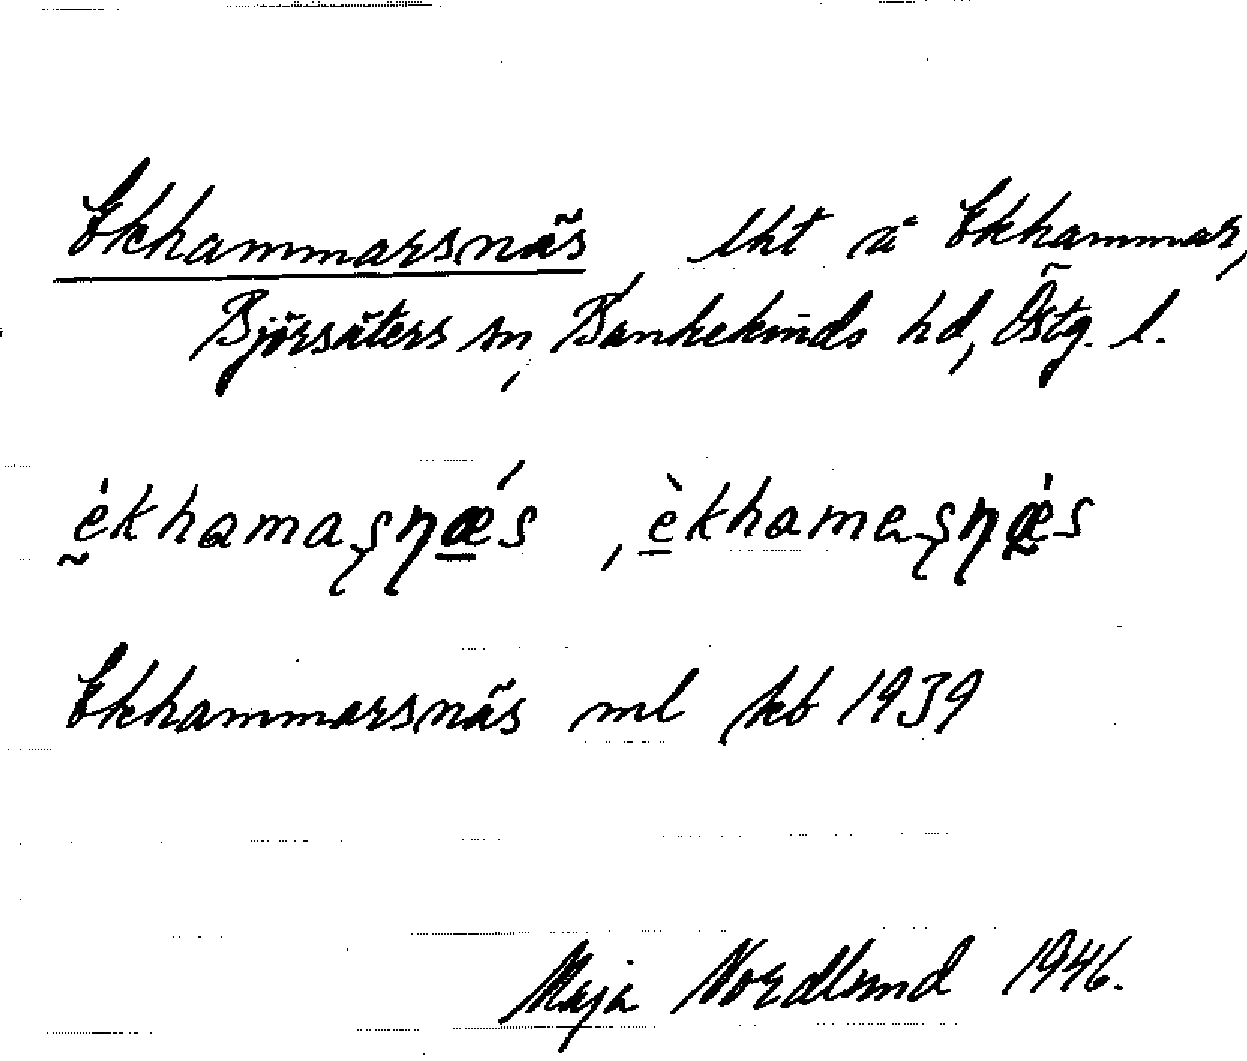 Ekhammarsnäs, lht å Ekhammar,
Björsäters sn, Bankekinds hd, Östg. l.
èkhamaʂɳǽs, èkhameʂɳæ̀s
Ekhammarsnäs ml kb 1939
Maja Nordlund 1946.